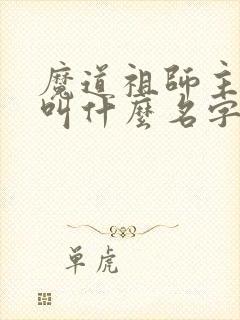 魔道祖師主
叫什麼名字
單虎